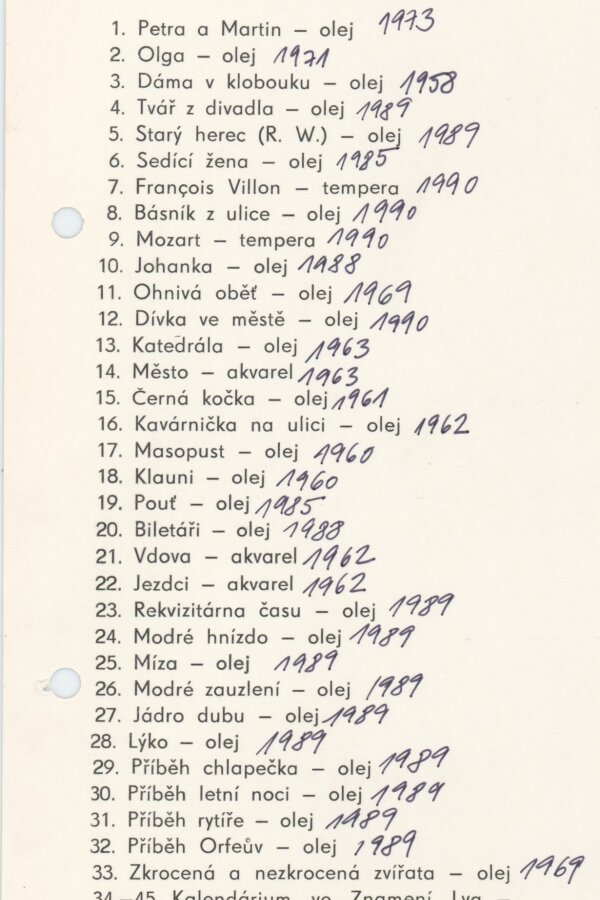 1. Petra a Martin – olej 1973
2. Olga – olej 1971
3. Dáma v klobouku – olej 1958
4. Tvář z divadla – olej 1989
5. Starý herec (R. W.) – olej 1989
6. Sedící žena – olej 1985
7. François Villon – tempera 1990
8. Básník z ulice – olej 1990
9. Mozart – tempera 1990
10. Johanka – olej 1988
11. Ohnivá oběť – olej 1969
12. Dívka ve městě – olej 1990
13. Katedrála – olej 1963
14. Město – akvarel 1963
15. Černá kočka – olej 1961
16. Kavárnička na ulici – olej 1962
17. Masopust – olej 1960
18. Klauni – olej 1960
19. Pouť – olej 1985
20. Biletáři – olej 1988
21. Vdova – akvarel 1962
22. Jezdci – akvarel 1962
23. Rekvizitárna času – olej 1989
24. Modré hnízdo – olej 1989
25. Míza – olej 1989
26. Modré zauzlení – olej 1989
27. Jádro dubu – olej 1989
28. Lýko – olej 1989
29. Příběh chlapečka – olej 1989
30. Příběh letní noci – olej 1989
31. Příběh rytíře – olej 1989
32. Příběh Orfeův – olej 1989
33. Zkrocená a nezkrocená zvířata – olej 1969
34.–45. Kalendárium ve Znamení Lva –